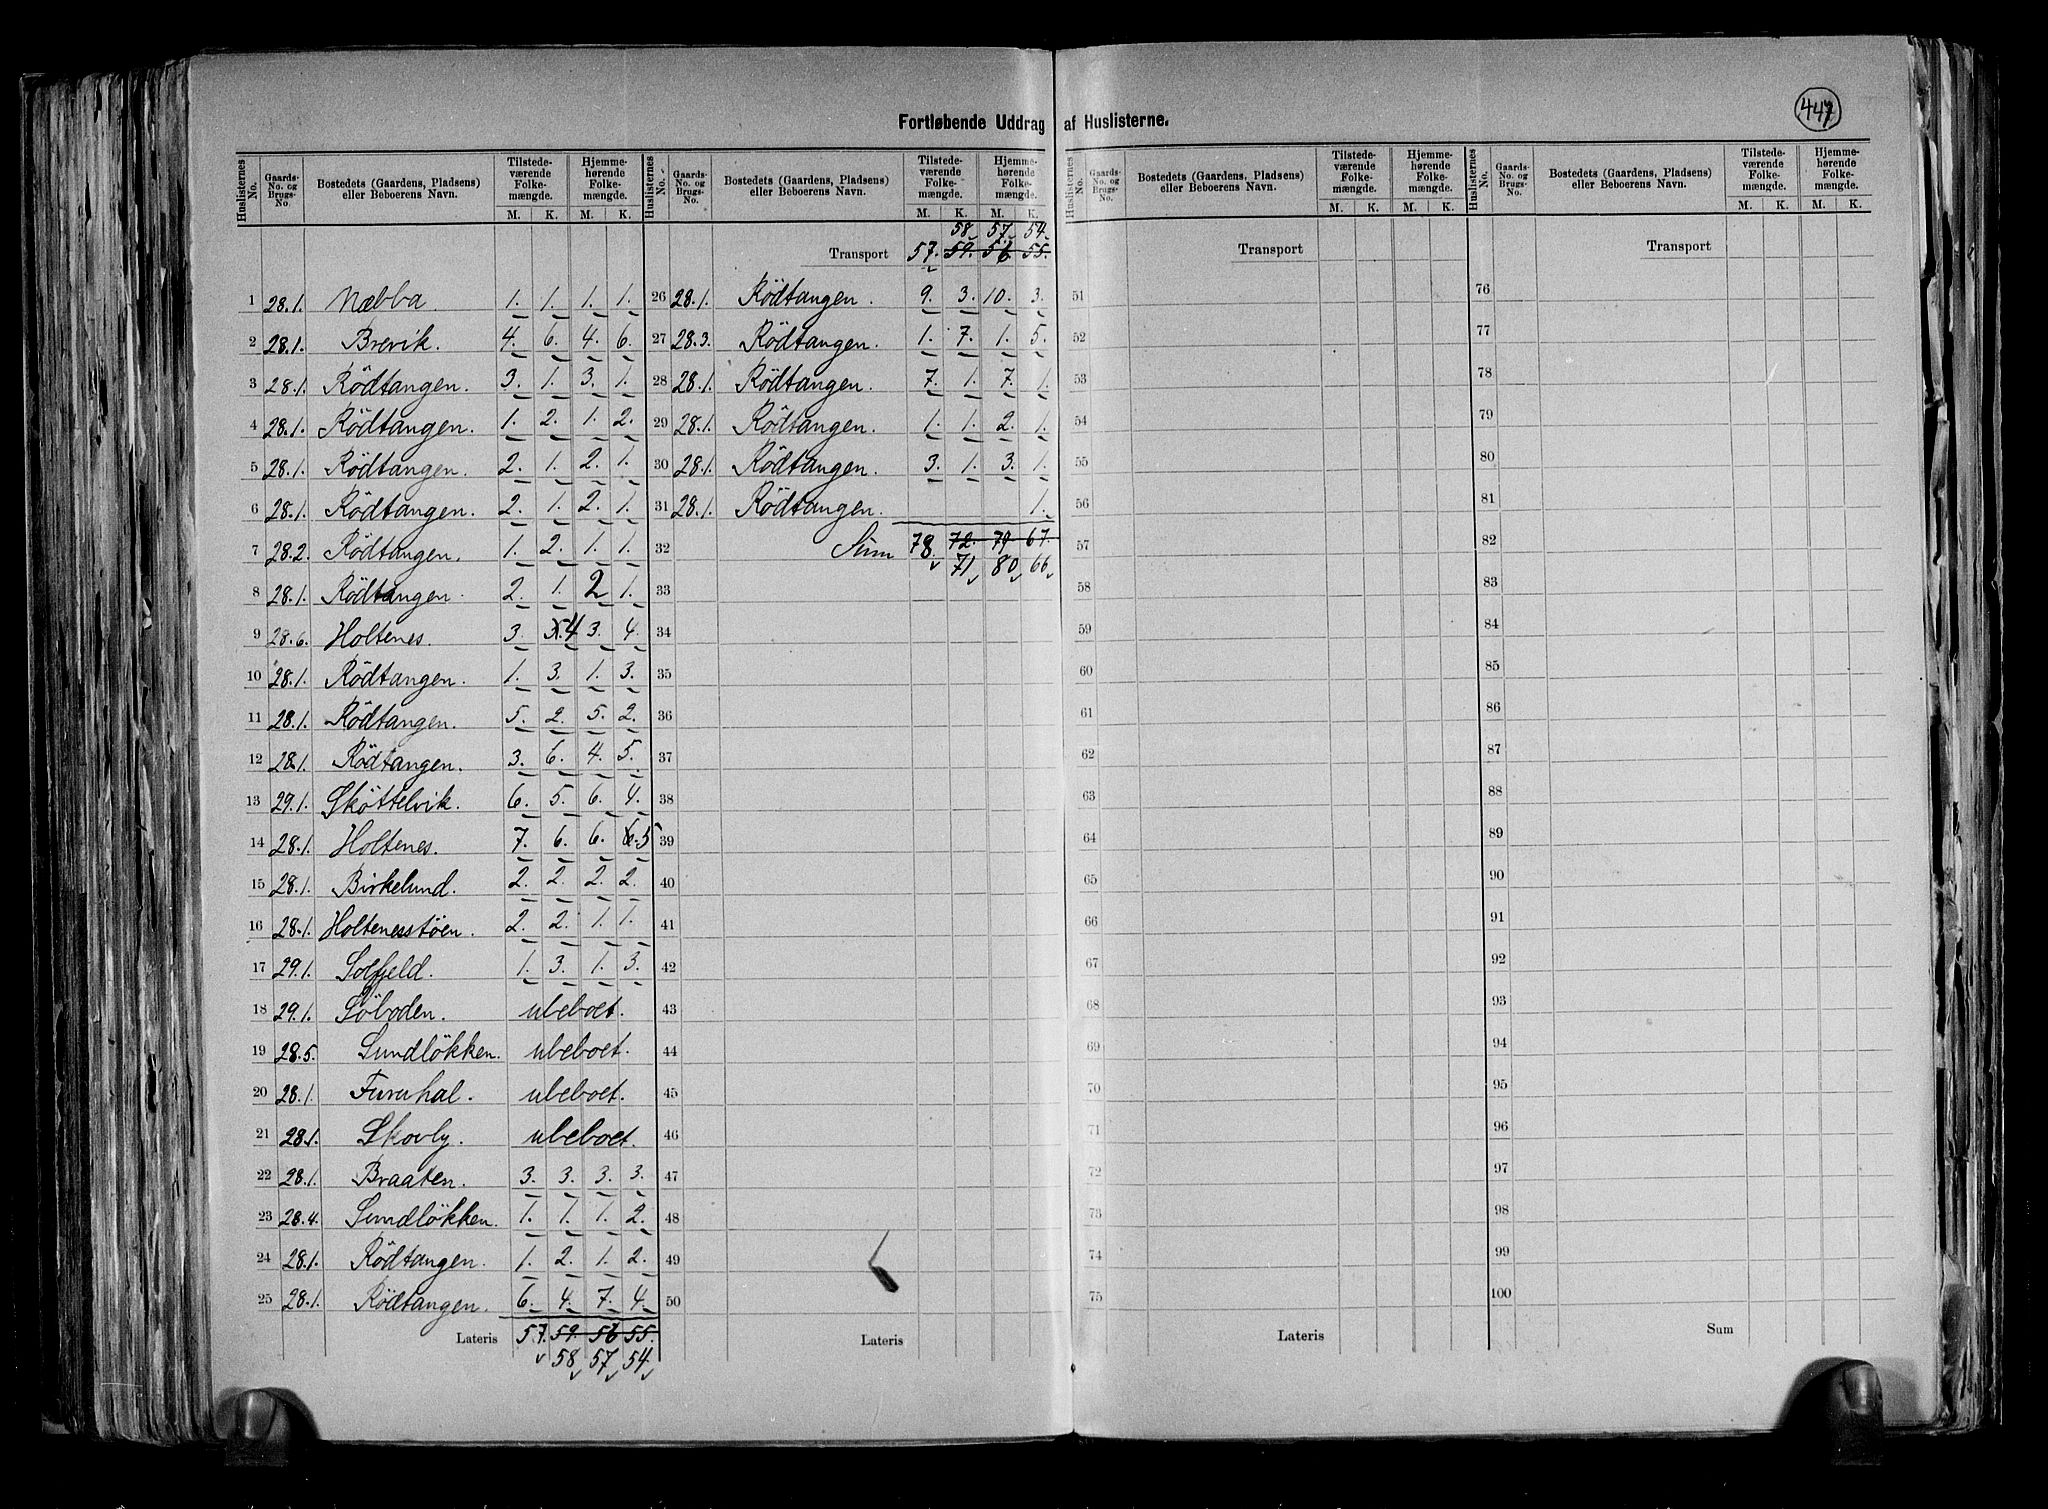 447
Fortløbende Uddrag af Huslisterne.
Huslisternes No. Gaards-No. og Brugs-No. Bostedets (Gaardens, Pladsens) eller Beboerens Navn. Tilstedeværende Folkemængde. M. K. Hjemmehørende Folkemængde. M. K.
1 28.1. Næbba 1. 1. 1. 1.
2 28.1. Brevik. 4. 6. 4. 6.
3 28.1. Rödtangen. 3. 1. 3. 1.
4 28.1. Rödtangen. 1. 2. 1. 2.
5 28.1. Rödtangen. 2. 1. 2. 1.
6 28.1. Rödtangen. 2. 1. 2. 1.
7 28.2. Rödtangen. 1. 2. 1. 1.
8 28.1. Rödtangen. 2. 1. 2 1.
9 28.6. Holtenes. 3. 5. 4 3. 4.
10 28.1. Rödtangen. 1. 3. 1. 3.
11 28.1. Rödtangen. 5. 2. 5. 2.
12 28.1. Rödtangen. 3. 6. 4. 5.
13 29.1. Sköttelvik. 6. 5. 6. 4.
14 28.1. Holtenes. 7. 6. 6. 6. 5
15 28.1. Birkelund. 2. 2. 2. 2.
16 28.1. Holtenesstöen. 2. 2. 1. 1.
17 29.1. Solfjeld. 1. 3. 1. 3.
18 29.1. Söboden. ubeboet.
19 28.5. Sundlökken. ubeboet.
20 28.1. Furuhal. ubeboet.
21 28.1. Skovly. ubeboet.
22 28.1. Braaten. 3. 3. 3. 3.
23 28.4. Sundlökken. 1. 1. 1. 2.
24 28.1. Rödtangen. 1. 2. 1. 2.
25 28.1. Rödtangen. 6. 4. 7. 4.
Lateris 57. 59. 56 55.
58 57 54.
Huslisternes No. Gaards-No. og Brugs-No. Bostedets (Gaardens, Pladsens) eller Beboerens Navn. Tilstedeværende Folkemængde. M. K. Hjemmehørende Folkemængde. M. K.
58 57 54
Transport 57. 59. 56. 55.
26 28.1. Rödtangen. 9. 3. 10. 3.
27 28.3. Rödtangen. 1. 7. 1. 5.
28 28.1. Rödtangen. 7. 1. 7. 1.
29 28.1. Rödtangen. 1. 1. 2. 1.
30 28.1. Rödtangen. 3. 1. 3. 1.
31 28.1. Rödtangen. 1.
32 Sum 78 72. 79 67.
71 80 66
33
34
35
36
37
38
39
40
41
42
43
44
45
46
47
48
49
50
Lateris
Huslisternes No. Gaards-No. og Brugs-No. Bostedets (Gaardens, Pladsens) eller Beboerens Navn. Tilstedeværende Folkemængde. M. K. Hjemmehørende Folkemængde. M. K.
Transport
51
52
53
54
55
56
57
58
59
60
61
62
63
64
65
66
67
68
69
70
71
72
73
74
75
Lateris
Huslisternes No. Gaards-No. og Brugs-No. Bostedets (Gaardens, Pladsens) eller Beboerens Navn. Tilstedeværende Folkemængde. M. K. Hjemmehørende Folkemængde. M. K.
Transport
76
77
78
79
80
81
82
83
84
85
86
87
88
89
90
91
92
93
94
95
96
97
98
99
100
Sum